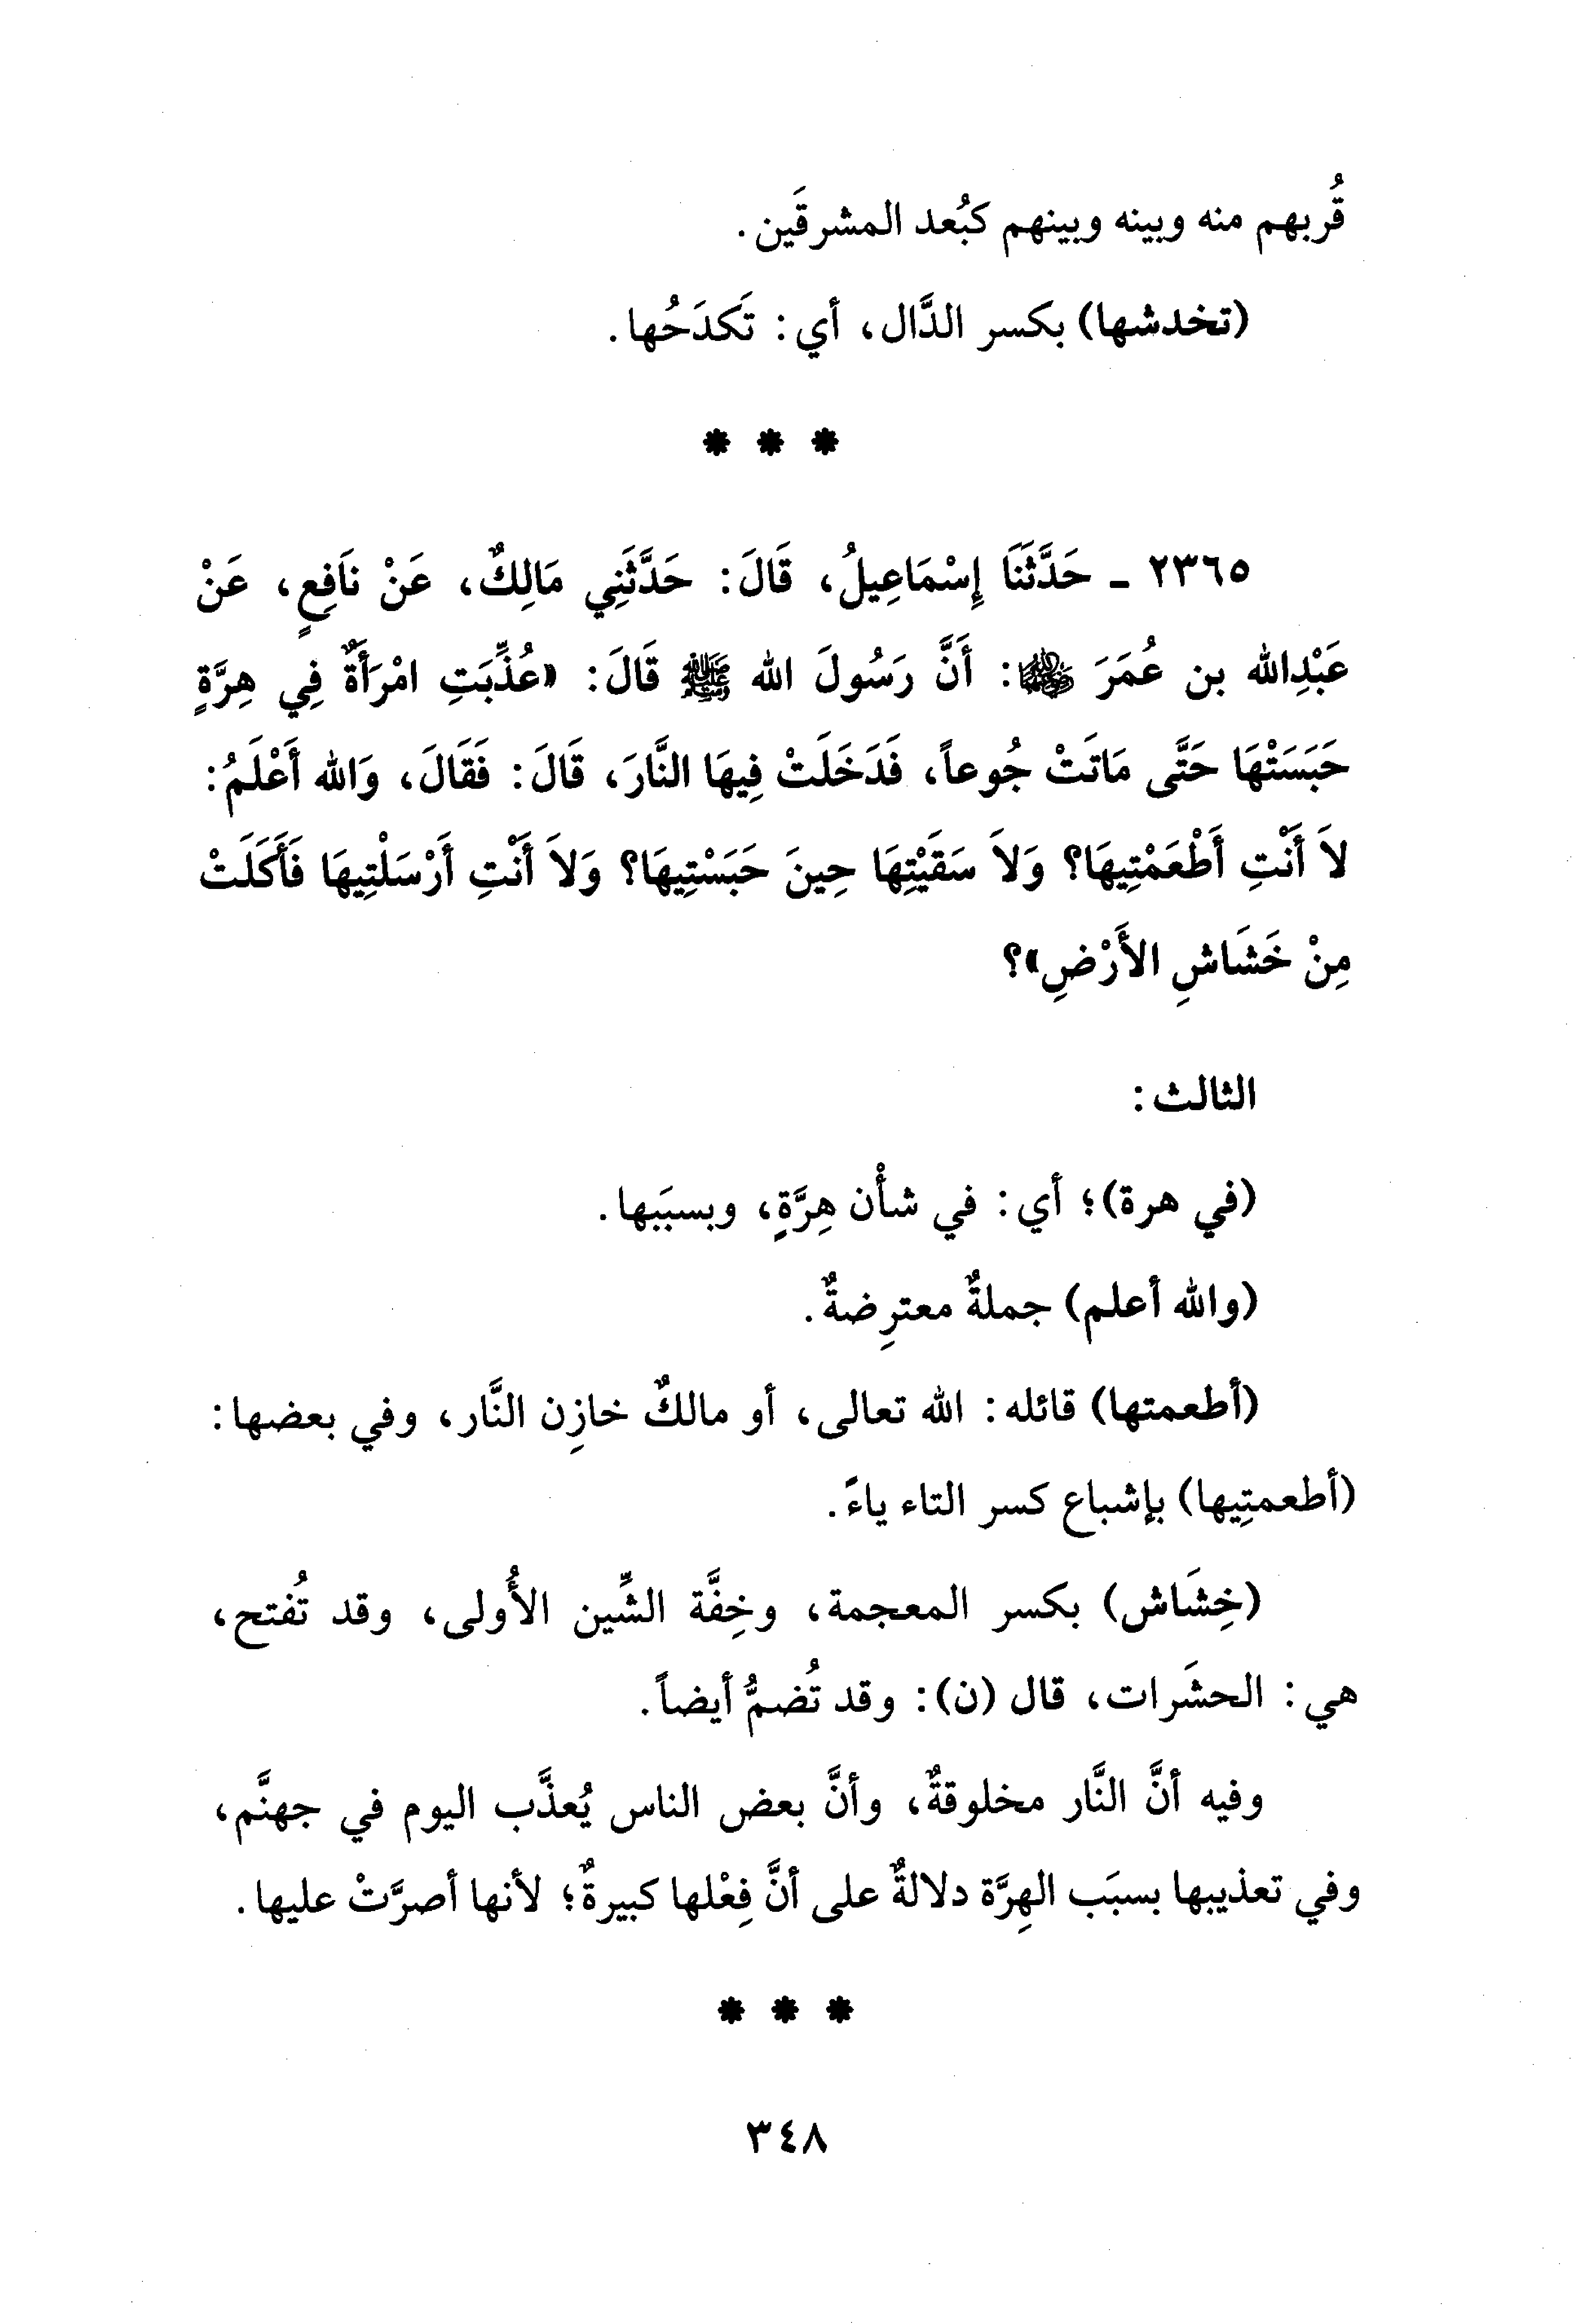 قُربهم منه وبينه وبينهم كبُعد المشرقَين.
(تخدشها) بكسر الدَّال، أي: تَكدَحُها.
* * *
٢٣٦٥ - حَدَّثَنَا إِسْمَاعِيلُ، قَالَ: حَدَّثَنِي مَالِكٌ، عَنْ نَافِعٍ، عَنْ
عَبْدِالله بن عُمَرَ ﵄: أَنَّ رَسُولَ الله ﷺ قَالَ: «عُذِّبَتِ امْرَأَةٌ فِي هِرَّةٍ
حَبَسَتْهَا حَتَّى مَاتَتْ جُوعاً، فَدَخَلَتْ فِيهَا النَّارَ، قَالَ: فَقَالَ، وَالله أَعْلَمُ:
لاَ أَنْتِ أَطْعَمْتِيهَا؟ وَلاَ سَقَيْتِهَا حِينَ حَبَسْتِيهَا؟ وَلاَ أَنْتِ أَرْسَلْتِيهَا فَأَكَلَتْ
مِنْ خَشَاشِ الأَرْضِ»؟
الثالث:
(في هرة)؛ أي: في شأْن هِرَّةٍ، وبسبَبها.
(والله أعلم) جملةٌ معترِضةٌ.
(أطعمتها) قائله: الله تعالى، أو مالكٌ خازِن النَّار، وفي بعضها:
(أطعمتِيها) بإشباع كسر التاء ياءً.
(خِشَاش) بكسر المعجمة، وخِفَّة الشِّين الأُولى، وقد تُفتح،
هي: الحشَرات، قال (ن): وقد تُضمُّ أيضاً.
وفيه أنَّ النَّار مخلوقةٌ، وأنَّ بعض الناس يُعذَّب اليوم في جهنَّم،
وفي تعذيبها بسبَب الهِرَّة دلالةٌ على أنَّ فِعْلها كبيرةٌ؛ لأنها أصرَّتْ عليها.
* * *
٣٤٨